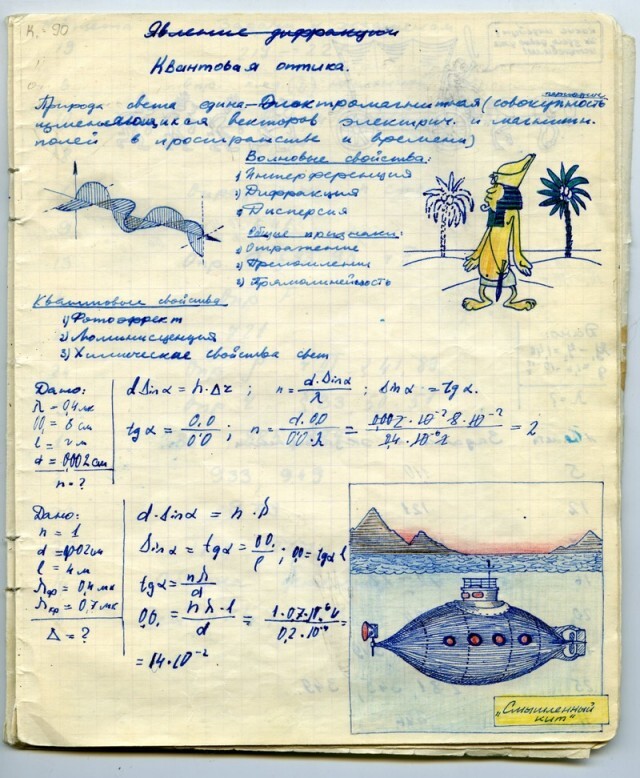 К. - 90
Явление дифракции
Квантовая оптика.
Природа света едина - Электромагнитная (совокупность
изменяющихся векторов электрич. и магнитн.
полей в пространстве и времени)
Волновые свойства:
1) Интерференция
2) Дифракция
3) Дисперсия
Общие признаки:
1) Отражение
2) Преломление
3) Прямолинейность
Квантовые свойства
1) Фотоэффект
2) Люминисценция
3) Химическое свойства свет
Дано:
λ = 0,4 мк
l = 2 м
d = 0,002 см
n - ?
d Sin α = n · λ ; n = d · Sin α / λ ; Sin α = tg α.
= 2
Дано:
n = 1
d = 0,002 см
l = 4 м
λф = 0,4 мк
λкр = 0,7 мк
Δ = ?
d · Sin α = n · λ
tg α = nλ / d
= 14 · 10⁻².
"Смышленный
кит"